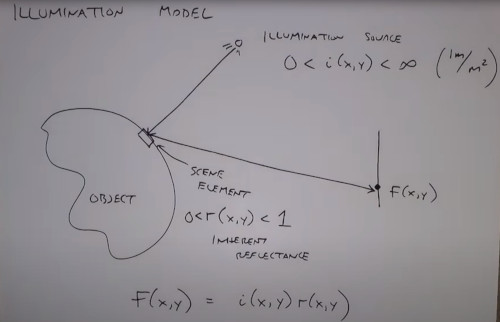 ILLUMINATION MODEL
ILLUMINATION SOURCE
0 < i(x,y) < ∞ (lm/m²)
SCENE
ELEMENT
OBJECT
F(x,y)
0<r(x,y) < 1
INHERENT
REFLECTANCE
F(x,y) = i(x,y) r(x,y)